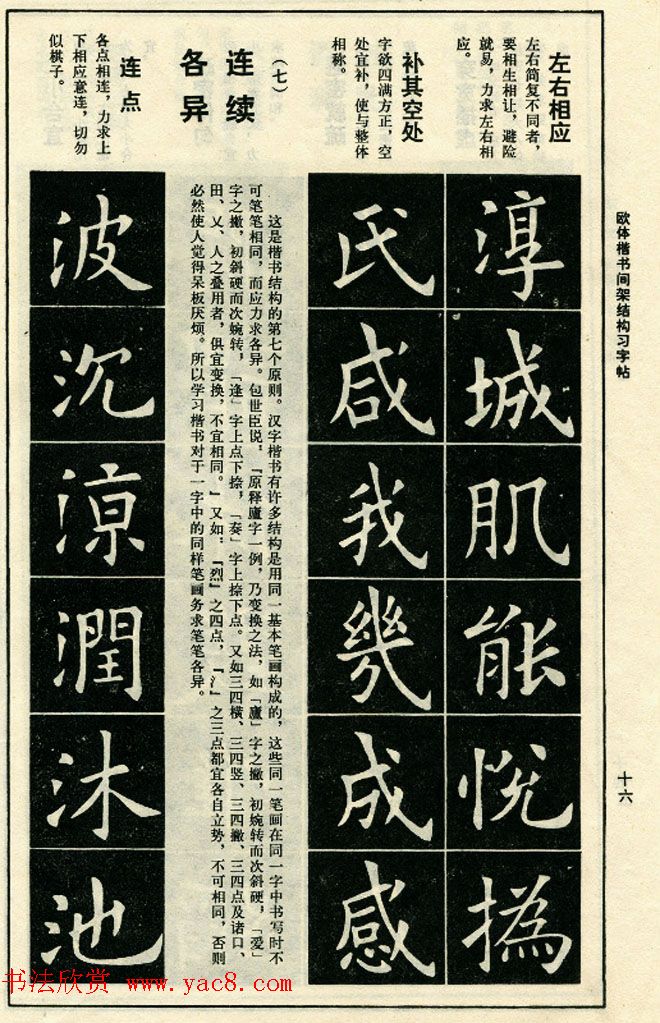 欧体楷书间架结构习字帖
十六
左右相应
左右简复不同者，
要相生相让，避险
就易，力求左右相
应。
淳
城
肌
能
悦
撝
补其空处
字欲四满方正，空
处宜补，使与整体
相称。
氏
咸
我
几
成
感
（七）
连续
各异
这是楷书结构的第七个原则。汉字楷书有许多结构是用同一基本笔画构成的，这些同一笔画在同一字中书写时不
可笔笔相同，而应力求各异。包世臣说，『原释廬字一例，乃变换之法，如「廬」字之撇，初婉转而次斜硬，「爱」
字之撇，初斜硬而次婉转，「逢」字上点下捺，「奏」字上捺下点。又如三四横、三四竖、三四撇、三四点及诸口、
田、又、人之叠用者，俱宜变换，不宜相同。』又如：『烈』之四点，『氵』之三点都宜各自立势，不可相同，否则
必然使人觉得呆板厌烦。所以学习楷书对于一字中的同样笔画务求笔笔各异。
连点
各点相连，力求上
下相应意连，切勿
似棋子。
波
沉
涼
潤
沐
池
书法欣赏 www.yac8.com